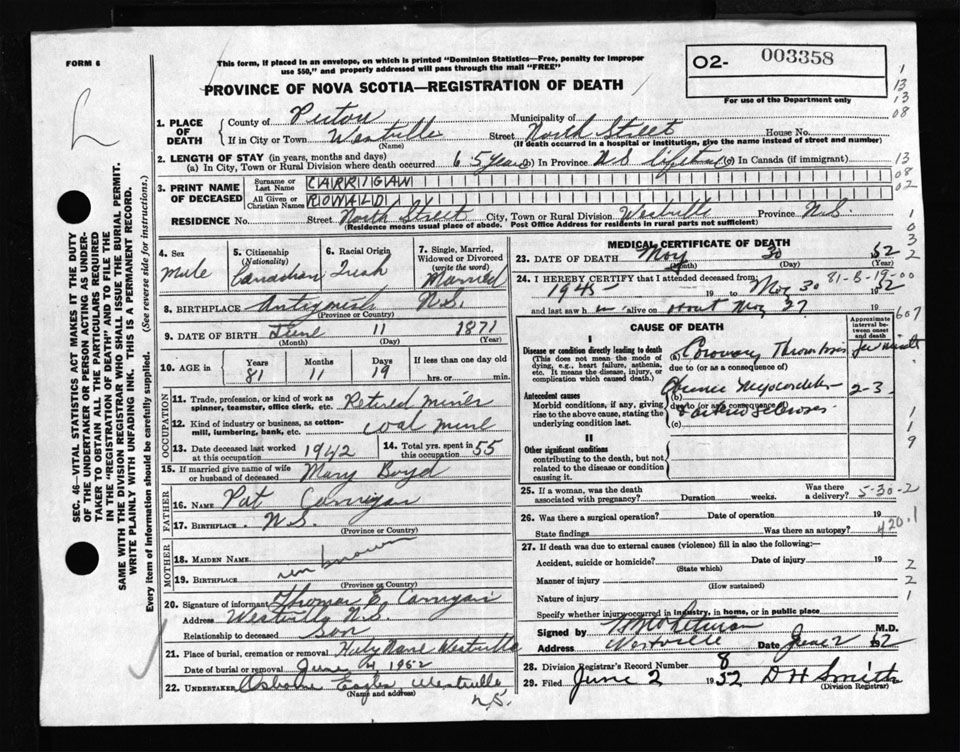 FORM 6
This form, if placed in an envelope, on which is printed "Dominion Statistics—Free, penalty for improper
use $50," and properly addressed will pass through the mail "FREE"
PROVINCE OF NOVA SCOTIA—REGISTRATION OF DEATH
O2- 003358
For use of the Department only
1. PLACE OF DEATH
County of Pictou Municipality of
If in City or Town Westville Street North Street House No.
(Name) (If death occurred in a hospital or institution, give the name instead of street and number)
2. LENGTH OF STAY (in years, months and days)
(a) In City, Town or Rural Division where death occurred 65 years (b) In Province N.S. lifetime (c) In Canada (if immigrant)
3. PRINT NAME OF DECEASED
Surname or Last Name CARRIGAN
All Given or Christian Names RONALD
RESIDENCE No. Street North Street City, Town or Rural Division Westville Province N.S.
(Residence means usual place of abode. Post Office Address for residents in rural parts not sufficient)
4. Sex Male
5. Citizenship (Nationality) Canadian
6. Racial Origin Irish
7. Single, Married, Widowed or Divorced (write the word) Married
8. BIRTHPLACE Antigonish N.S.
(Province or Country)
9. DATE OF BIRTH June 11 1871
(Month) (Day) (Year)
10. AGE in Years 81 Months 11 Days 19 If less than one day old hrs. or min.
OCCUPATION
11. Trade, profession, or kind of work as spinner, teamster, office clerk, etc. Retired miner
12. Kind of industry or business, as cotton-mill, lumbering, bank, etc. coal mine
13. Date deceased last worked at this occupation 1942
14. Total yrs. spent in this occupation 55
15. If married give name of wife or husband of deceased Mary Boyd
FATHER
16. NAME Pat Carrigan
17. BIRTHPLACE N.S.
(Province or Country)
MOTHER
18. MAIDEN NAME unknown
19. BIRTHPLACE
(Province or Country)
20. Signature of informant Thomas Carrigan
Address Westville N.S.
Relationship to deceased son
21. Place of burial, cremation or removal Holy Name Westville
Date of burial or removal June 4 1952
22. UNDERTAKER Osborne Eagles Westville
(Name and address)
N.S.
MEDICAL CERTIFICATE OF DEATH
23. DATE OF DEATH May 30 1952
(Month) (Day) (Year)
81-8-19-00
24. I HEREBY CERTIFY that I attended deceased from:
1945 19 to May 30 1952
and last saw h alive on about May 27 19
CAUSE OF DEATH
Approximate interval between onset and death
I
Disease or condition directly leading to death (a) Coronary Thrombosis few minutes
(This does not mean the mode of dying, e.g., heart failure, asthenia, etc. It means the disease, injury, or complication which caused death.)
due to (or as a consequence of)
Antecedent causes
(b) Chronic Myocarditis 2-3
Morbid conditions, if any, giving rise to the above cause, stating the underlying condition last.
due to (or as a consequence of)
(c)
II
Other significant conditions
contributing to the death, but not related to the disease or condition causing it.
25. If a woman, was the death associated with pregnancy? Duration weeks. Was there a delivery? 5-30-2
26. Was there a surgical operation? Date of operation 19
State findings Was there an autopsy? 420.1
27. If death was due to external causes (violence) fill in also the following:—
Accident, suicide or homicide? Date of injury 19
(State which)
Manner of injury
(How sustained)
Nature of injury
Specify whether injury occurred in industry, in home, or in public place
Signed by M.D.
Address Westville Date June 2 52
28. Division Registrar's Record Number 8
29. Filed June 2 1952 D H Smith
(Division Registrar)
SEC. 46—VITAL STATISTICS ACT MAKES IT THE DUTY
OF THE UNDERTAKER OR PERSON ACTING AS UNDER-
TAKER TO OBTAIN ALL THE PARTICULARS REQUIRED
IN THE "REGISTRATION OF DEATH" AND TO FILE THE
SAME WITH THE DIVISION REGISTRAR WHO SHALL ISSUE THE BURIAL PERMIT.
WRITE PLAINLY WITH UNFADING INK. THIS IS A PERMANENT RECORD.
Every item of information should be carefully supplied. (See reverse side for instructions.)
1
13
13
08
13
08
02
1
0
3
2
607
1
1
9
1
2
2
1